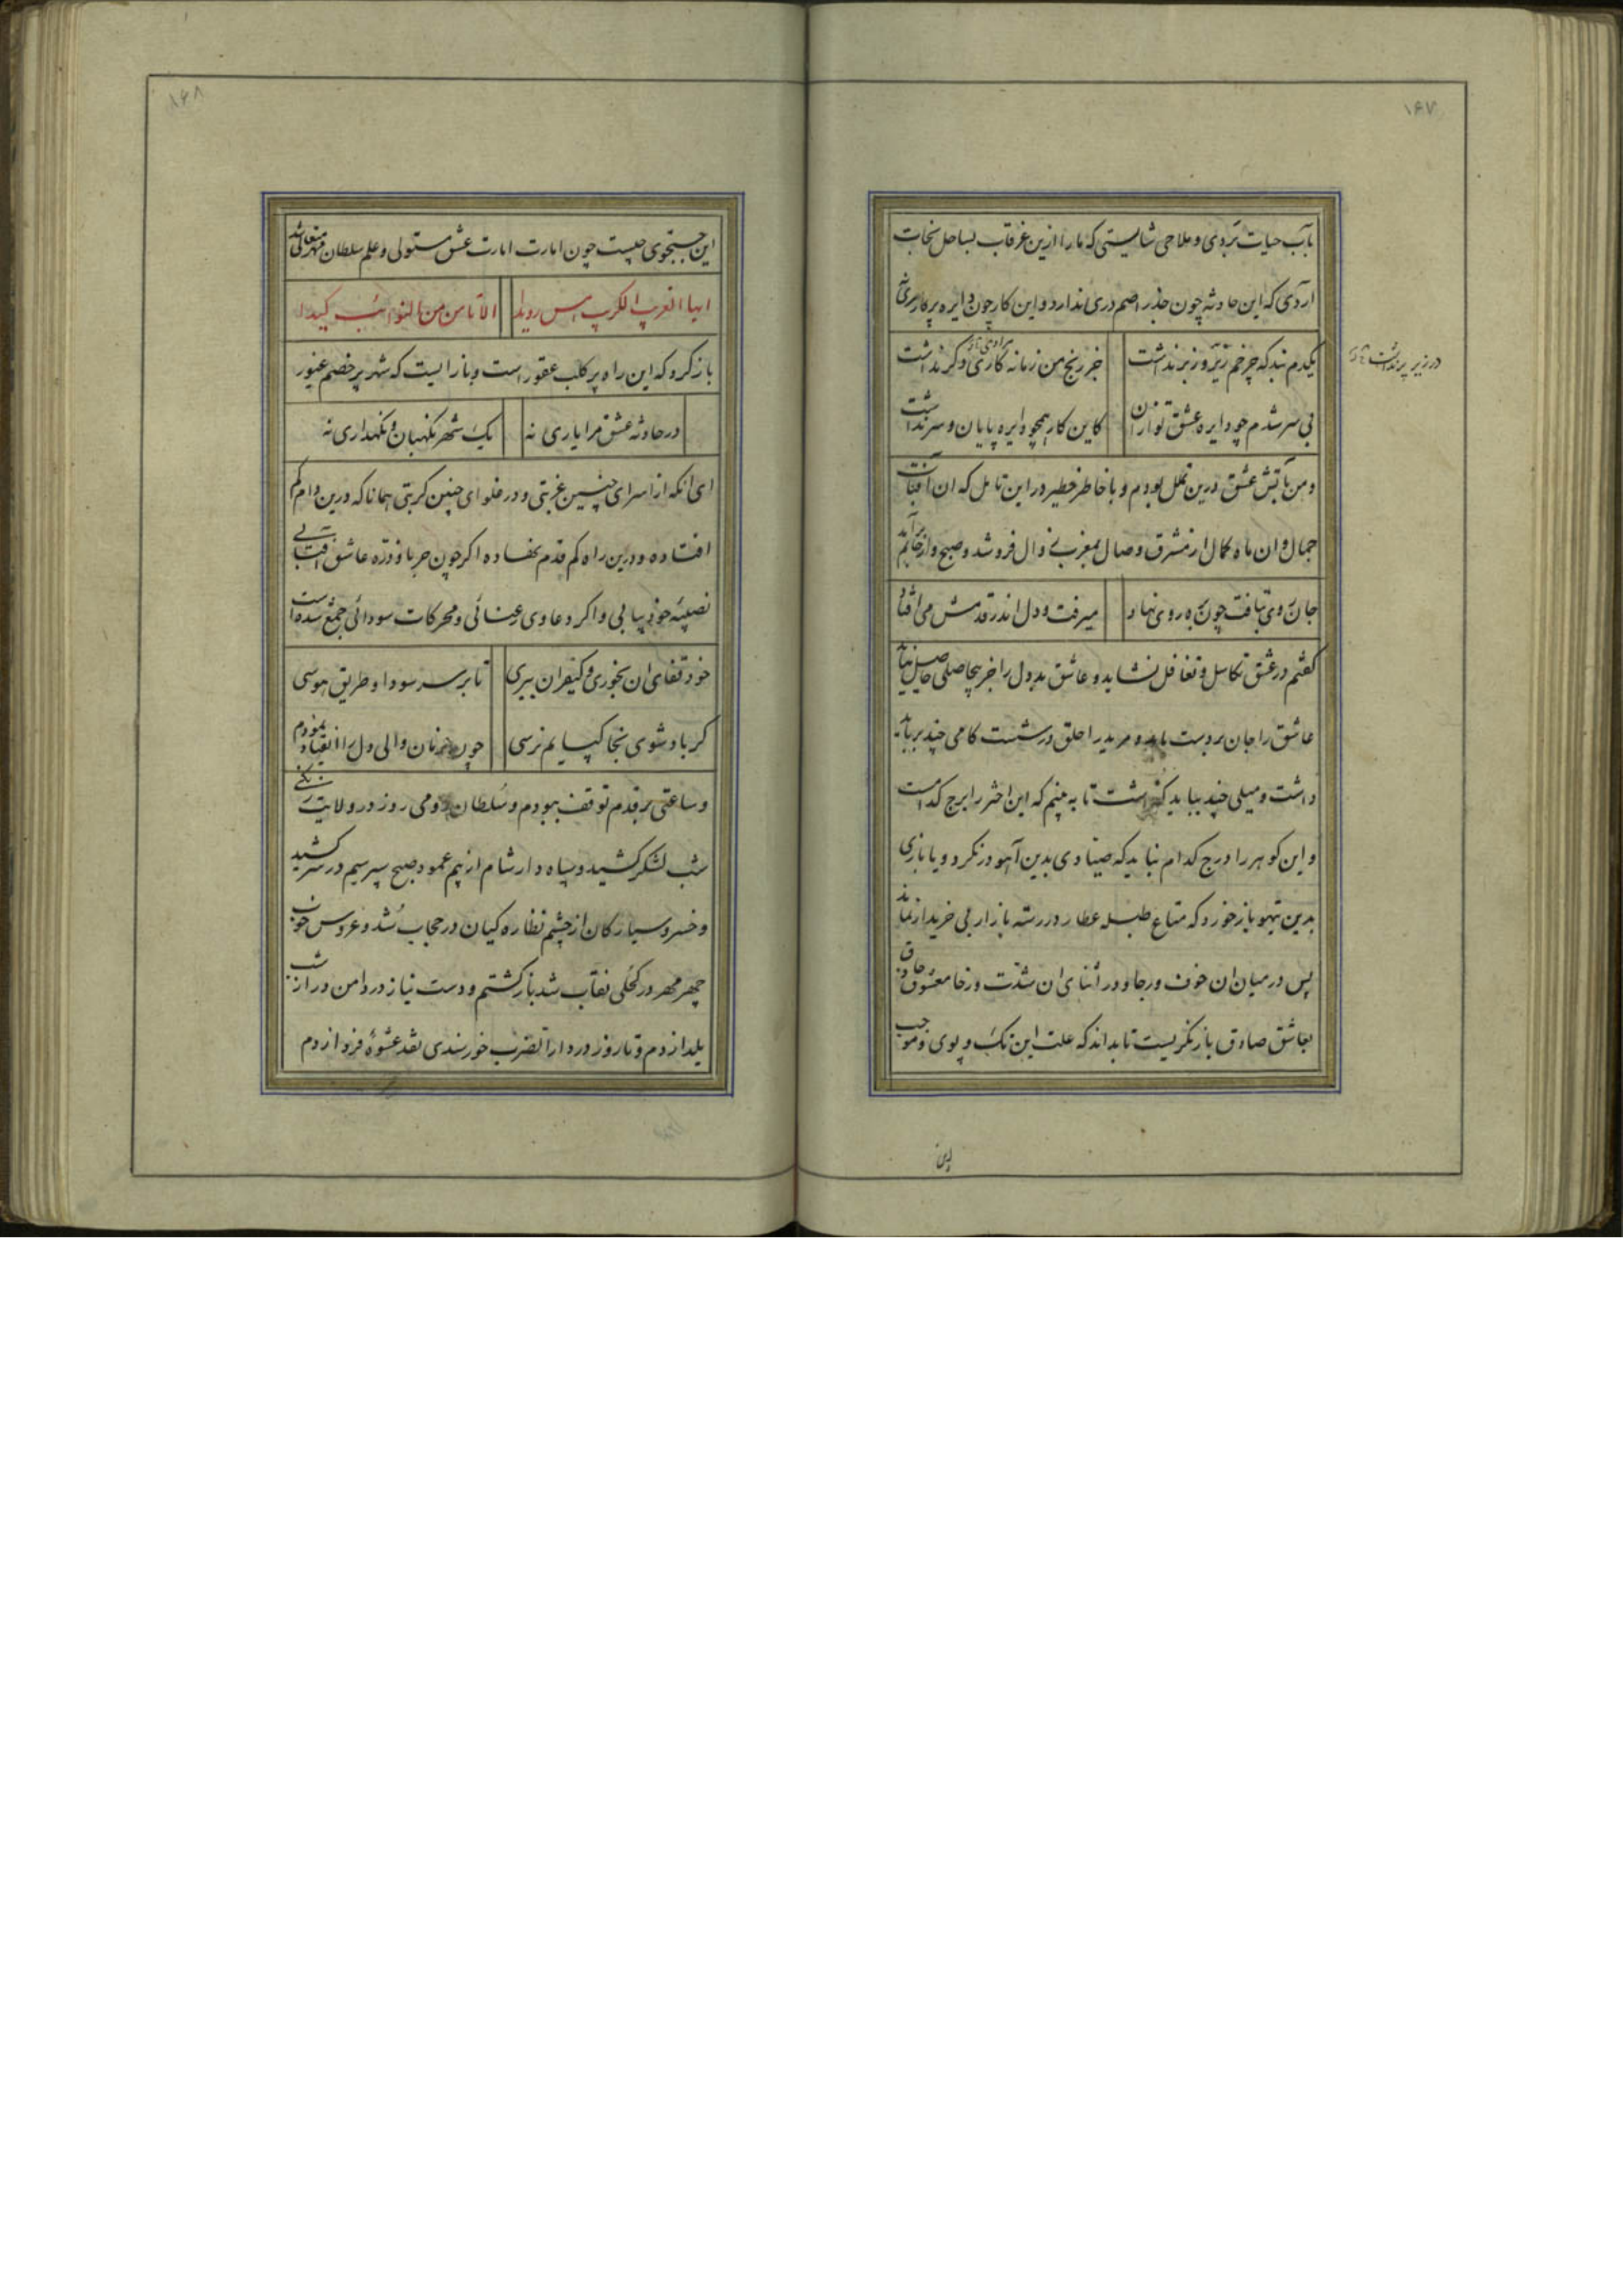 ۱۶۷
بآب حیات بردی و ملاحی شایستی که ما را ازین غرقاب بساحل نجات
آردی که این حادثه چون جذر اصم دری ندارد و این کار چون دایره پرکار سری
یکدم نبد که چرخم زیر و زبر نداشت جز رنج من زمانه کاری دگر نداشت
در زیر پر نداشت
بی سر شدم چو دایره عشق تو زان کاین کار همچو دایره پایان و سر نداشت
و من بآتش عشق درین تململ بودم و با خاطر خطیر در این تامل که ان آفتاب
جمال و ان ماه کمال از مشرق وصال بمغرب زوال فروشد و صبح واز خانم برآید
جان روی بتافت چون بره روی نهاد میرفت و دل اندر قدمش می افتاد
گفتم در عشق تکاسل و تغافل نشاید و عاشق بددل را جز بیحاصلی حاصل نیاید
عاشق را جان بردست باید و مرید را حلق در شست کامی چند برباید
داشت و میلی چند بباید گذاشت تا به بینم که این اختر را برج کدامست
و این کوهر را درج کدام نباید که صیادی بدین آهو درنکرد و یا بازی
بدین تیهو باز خورد که متاع طبله عطار در رسته بازار بی خریدار نماند
پس در میان ان خوف و رجا و در اثنای ان شدت و رخا معشوق حاذق
بعاشق صادق باز نکریست تا بداند که علت این تک و پوی و موجب
این
۱۶۸
این جستجوی چیست چون امارت امارت عشق مستولی و علم سلطان مهر متعالی شد
ایها الغرب الکرب امس رویدا الا تامن من النوائب کیدا
باز کرد که این راه پر کلب عقورست و بازاریست که شهر پر خصم غیور
در حادثه عشق مرا یاری نه یک شهر نکهبان و نکهداری نه
ای انکه از اسرای چنین غربتی و در غلوای چنین کربتی همانا که درین دام کم
افتاده و درین راه کم قدم نهاده اکر چون حربا و ذره عاشق آفتابی
نصیبه خود بیابی و اکر دعاوی رعنائی و محرکات سودائی جمع شده است
خود قفای ان بخوری و کیفر ان ببری تا بر سر سودا و طریق هوسی
کر باد شوی بخاک پایم نرسی چون فرمان والی دل را انقیاد نمودم
و ساعتی بر قدم توقف ببودم و سلطان رومی روز در ولایت زنکی
شب لشکر کشید و سپاه دار شام از بیم عمود صبح سپر سیم در سر کشید
و خسرو سیارکان از چشم نظاره کیان در حجاب شد و عروس خوب
چهر مهر در کحلی نقاب شد باز کشتم و دست نیاز در دامن دراز شب
یلدا زدم و تا روز در دار الضرب خورسندی نقد عشوه فردا زدم